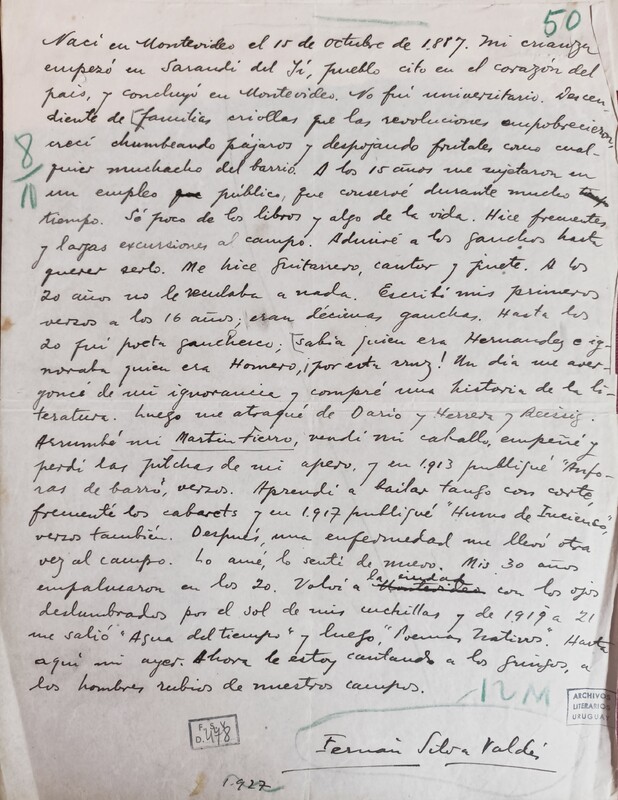 50
Nací en Montevideo el 15 de octubre de 1887. Mi crianza
empezó en Sarandí del Yí, pueblo cito en el corazón del
país, y concluyó en Montevideo. No fuí universitario. Descen-
diente de [familias criollas que las revoluciones empobrecieron,
crecí chumbeando pájaros y despojando frutales como cual-
quier muchacho del barrio. A los 15 años me sujetaron en
8/11
un empleo público, que conservé durante mucho
tiempo. Sé poco de los libros y algo de la vida. Hice frecuentes
y largas excursiones al campo. Admiré a los gauchos hasta
querer serlo. Me hice guitarrero, cantor y jinete. A los
20 años no le reculaba a nada. Escribí mis primeros
verzos a los 16 años; eran décimas gauchas. Hasta los
20 fuí poeta gauchesco; [sabía quien era Hernandez e ig-
noraba quien era Homero, ¡por esta cruz! Un día me aver-
goncé de mi ignorancia y compré una historia de la li-
teratura. Luego me atraqué de Darío y Herrera y Reissig.
Arrumbé mi Martín Fierro, vendí mi caballo, empeñé y
perdí las pilchas de mi apero, y en 1913 publiqué "Ánfo-
ras de barro", verzos. Aprendí a bailar tango con corte,
frecuenté los cabarets y en 1917 publiqué "Humo de Incienso",
verzos también. Después, una enfermedad me llevó otra
vez al campo. Lo amé, lo sentí de nuevo. Mis 30 años
empalmaron en los 20. Volví a la ciudad con los ojos
deslumbrados por el sol de mis cuchillas y de 1919 a 21
me salió "Agua del tiempo" y luego, "Poemas Nativos". Hasta
aquí mi ayer. Ahora le estoy cantando a los gringos, a
los hombres rubios de nuestros campos.
12M
ARCHIVOS
LITERARIOS
URUGUAY
F. S. V.
D. 478
Fernán Silva Valdés
1927